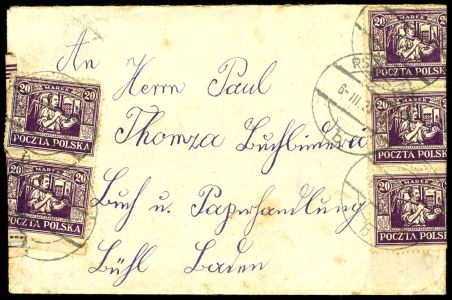 An
Herrn Paul
Thomza Buchbinderei
Buch u. Paperhandlung
Bühl Baden
20 MAREK 20
POCZTA POLSKA
20 MAREK 20
POCZTA POLSKA
20 MAREK 20
POCZTA POLSKA
20 MAREK 20
POCZTA POLSKA
20 MAREK 20
POCZTA POLSKA